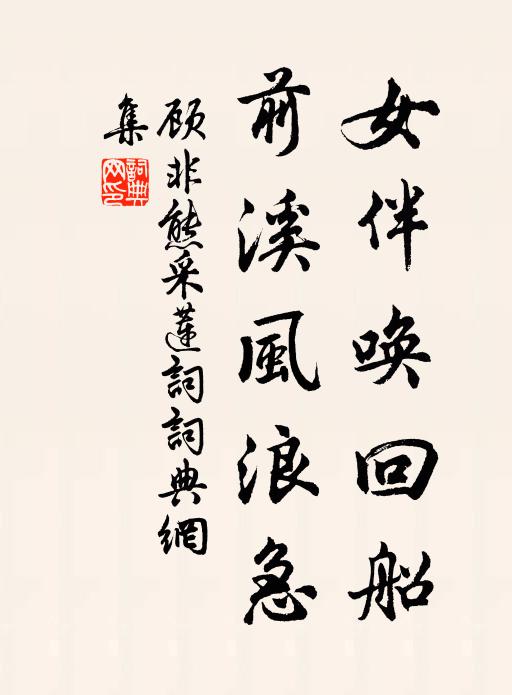 女伴唤回船
前溪風浪急
顾非熊采蓮詞詞典網
集
詞典
网印